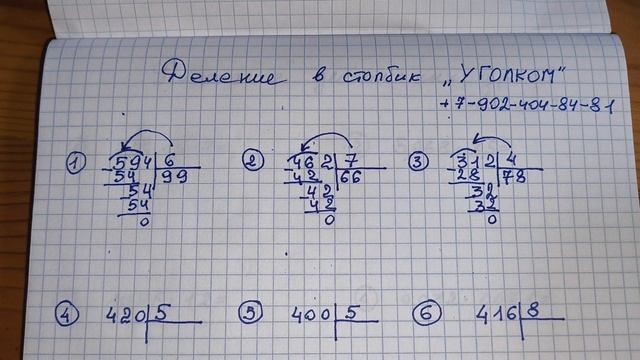 Деление в столбик „УГОЛКОМ"
+7-902-404-84-81
① 594 6 ② 462 7 ③ 312 4
-54 99 -42 66 -28 78
-54 -42 -32
54 42 32
0 0 0
④ 420 5 ⑤ 400 5 ⑥ 416 8